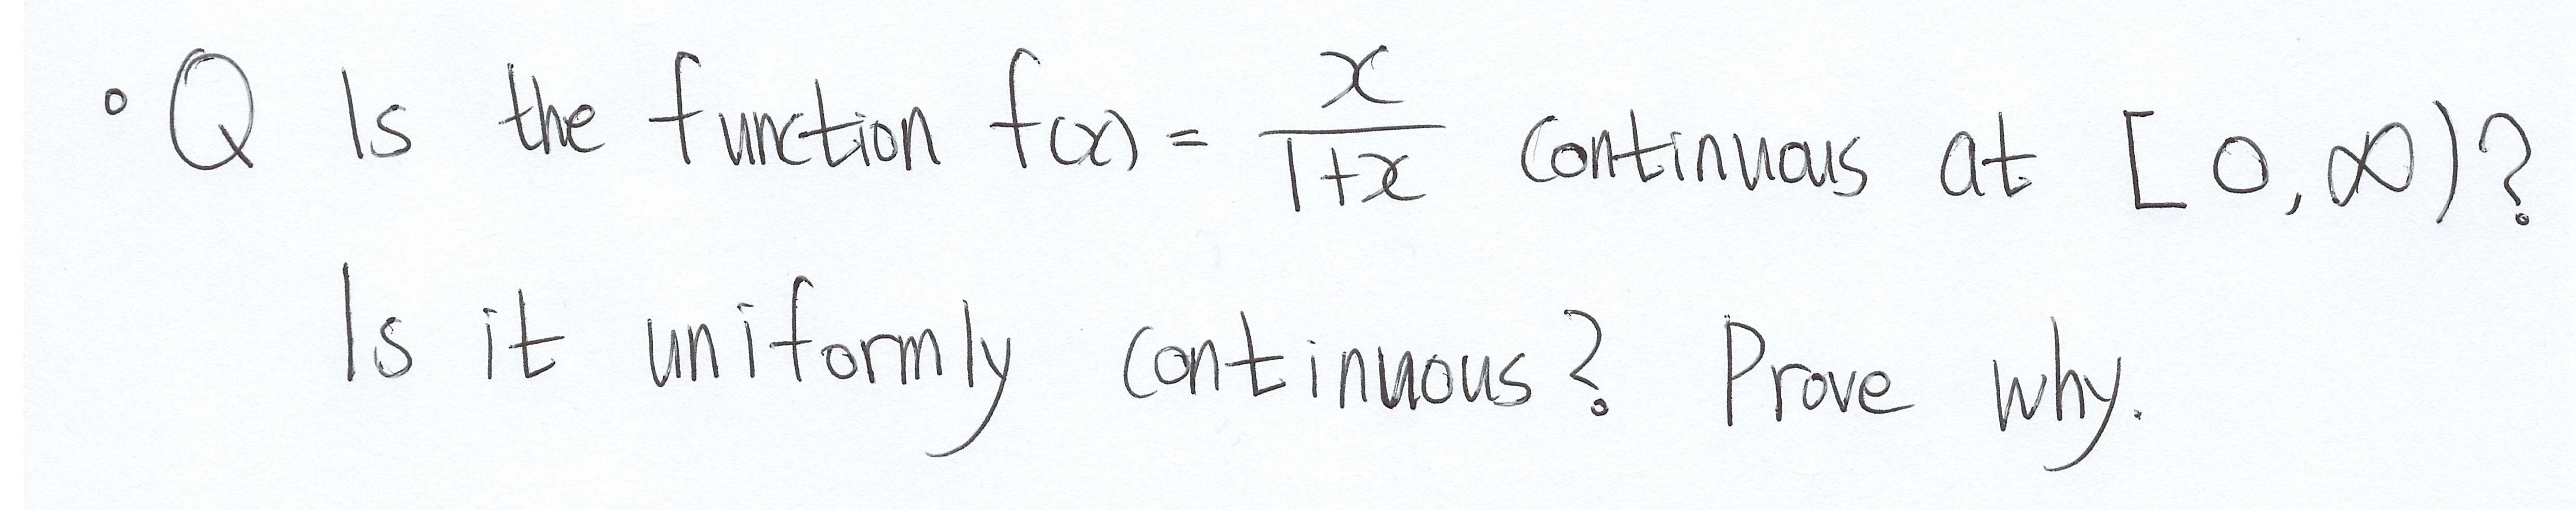 • Q Is the function f(x) = x/(1+x) continuous at [0,∞)?
Is it uniformly continuous? Prove why.